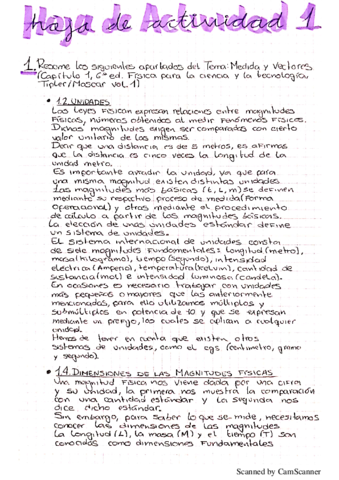 Hoja de actividad 1
1. Resume los siguientes apartados del Tema: Medida y Vectores
(Capítulo 1, 6ª ed. Física para la ciencia y la tecnología,
Tipler/Moscar vol. 1)
• 1.2 UNIDADES
Las leyes físicas expresan relaciones entre magnitudes
físicas, números obtenidos al medir fenómenos físicos.
Dichas magnitudes exigen ser comparadas con cierto
valor unitario de las mismas.
Decir que una distancia es de 5 metros, es afirmar
que la distancia es cinco veces la longitud de la
unidad metro.
Es importante añadir la unidad, ya que para
una misma magnitud existen distintas unidades.
Las magnitudes más básicas (t, L, m) se definen
mediante su respectivo proceso de medida (forma
operacional) y otras mediante el procedimiento
de cálculo a partir de las magnitudes básicas.
La elección de unas unidades estándar define
un sistema de unidades.
El sistema internacional de unidades consta
de siete magnitudes fundamentales: longitud (metro),
masa (kilogramo), tiempo (segundo), intensidad
eléctrica (Amperio), temperatura (Kelvin), cantidad de
sustancia (mol) e intensidad luminosa (candela).
En ocasiones es necesario trabajar con unidades
más pequeñas o mayores que las anteriormente
mencionadas, para ello utilizamos múltiplos y
submúltiplos en potencia de 10 y que se expresan
mediante un prefijo, los cuales se aplican a cualquier
unidad.
Hemos de tener en cuenta que existen otros
sistemas de unidades, como el cgs (centímetro, gramo
y segundo).
• 1.4. DIMENSIONES DE LAS MAGNITUDES FÍSICAS
Una magnitud física nos viene dada por una cifra
y su unidad, la primera nos muestra la comparación
con una cantidad estándar y la segunda nos
dice dicho estándar.
Sin embargo, para saber lo que se mide, necesitamos
conocer las dimensiones de las magnitudes
La longitud (L), la masa (M) y el tiempo (T) son
conocidos como dimensiones fundamentales
Scanned by CamScanner